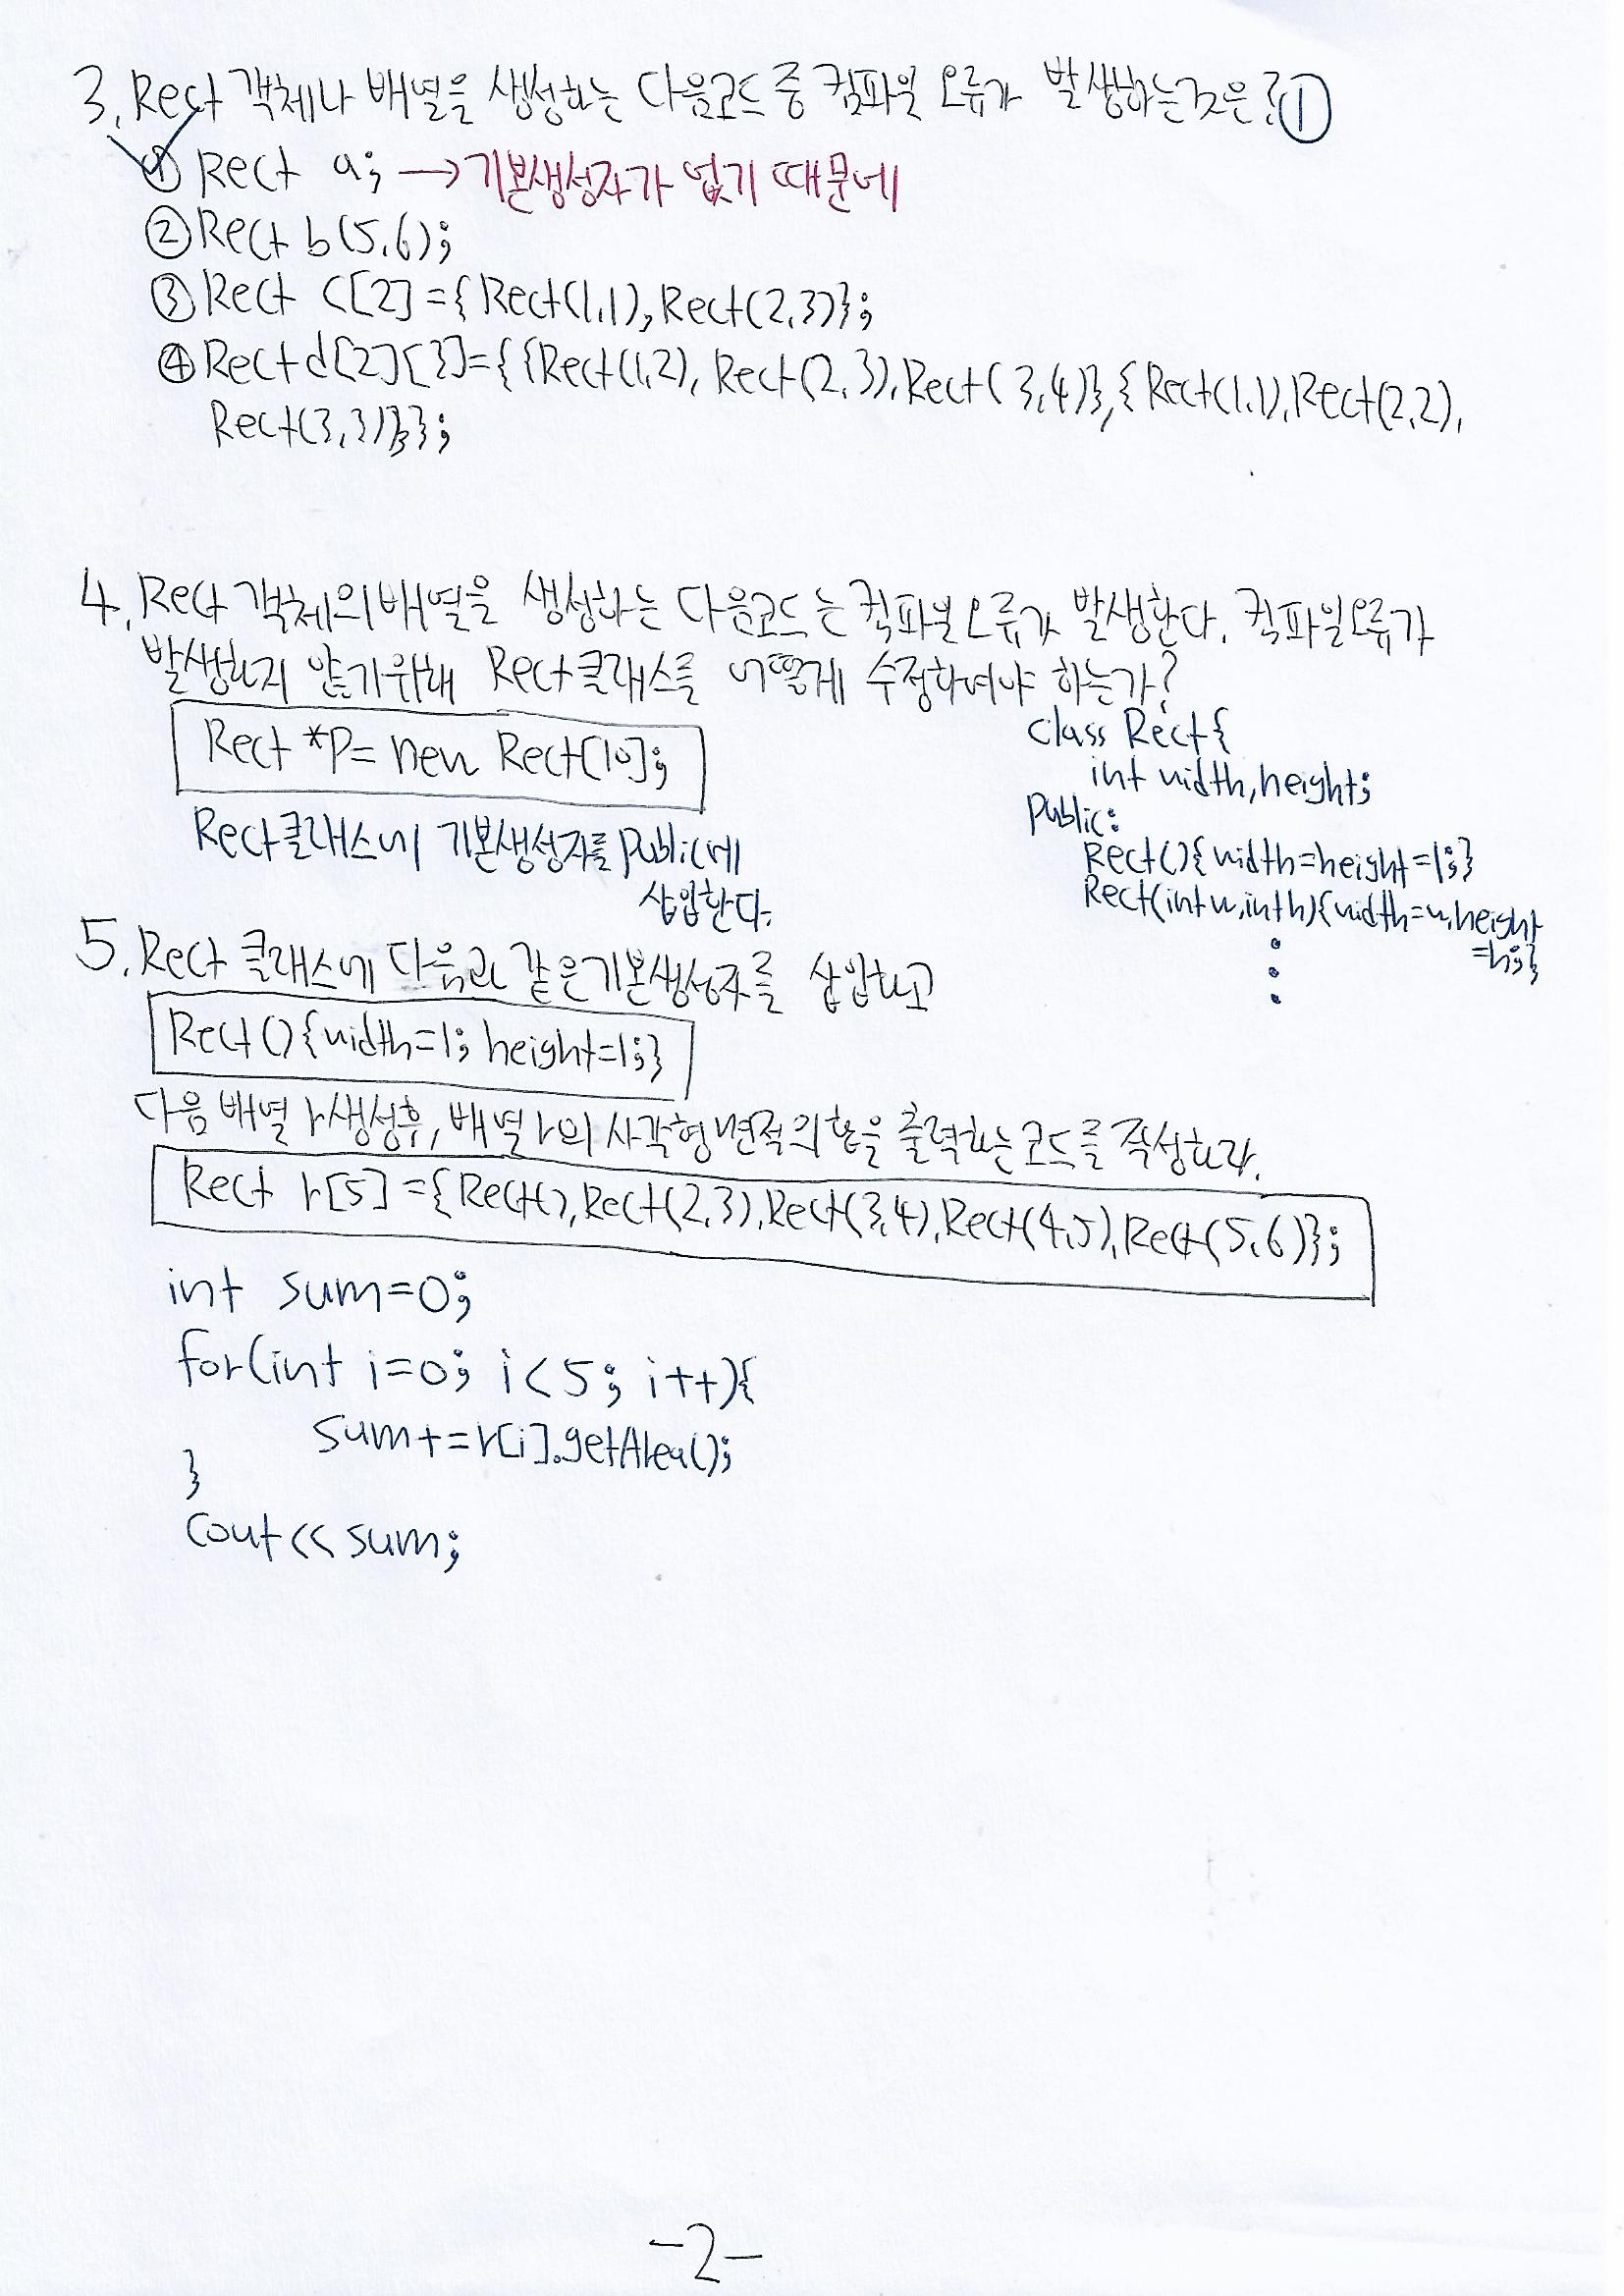 3. Rect 객체나 배열을 생성하는 다음코드 중 컴파일 오류가 발생하는것은? ①
① Rect a; → 기본생성자가 없기 때문에
② Rect b(5,6);
③ Rect c[2]={Rect(1,1), Rect(2,3)};
④ Rect d[2][3]={{Rect(1,2), Rect(2,3), Rect(3,4)}, {Rect(1,1), Rect(2,2),
Rect(3,3)}};
4. Rect 객체의 배열을 생성하는 다음코드는 컴파일 오류가 발생한다. 컴파일오류가
발생하지 않기위해 Rect클래스를 어떻게 수정하여야 하는가?
Rect *p= new Rect[10];
Rect클래스에 기본생성자를 public에
삽입한다.
class Rect{
int width, height;
public:
Rect(){width=height=1;}
Rect(int w, int h){width=w, height
=h;}
5. Rect 클래스에 다음과 같은 기본생성자를 삽입하고
Rect(){width=1; height=1;}
다음 배열 r생성후, 배열 r의 사각형 면적의 합을 출력하는 코드를 작성하라.
Rect r[5]={Rect(), Rect(2,3), Rect(3,4), Rect(4,5), Rect(5,6)};
int sum=0;
for(int i=0; i<5; i++){
sum+=r[i].getArea();
}
cout<<sum;
-2-